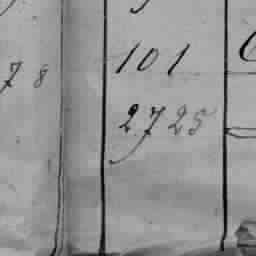 101
78
2725